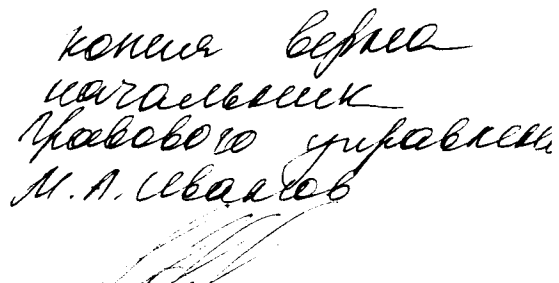 копия верна
начальник
Правового управлени
М.А. Иванов